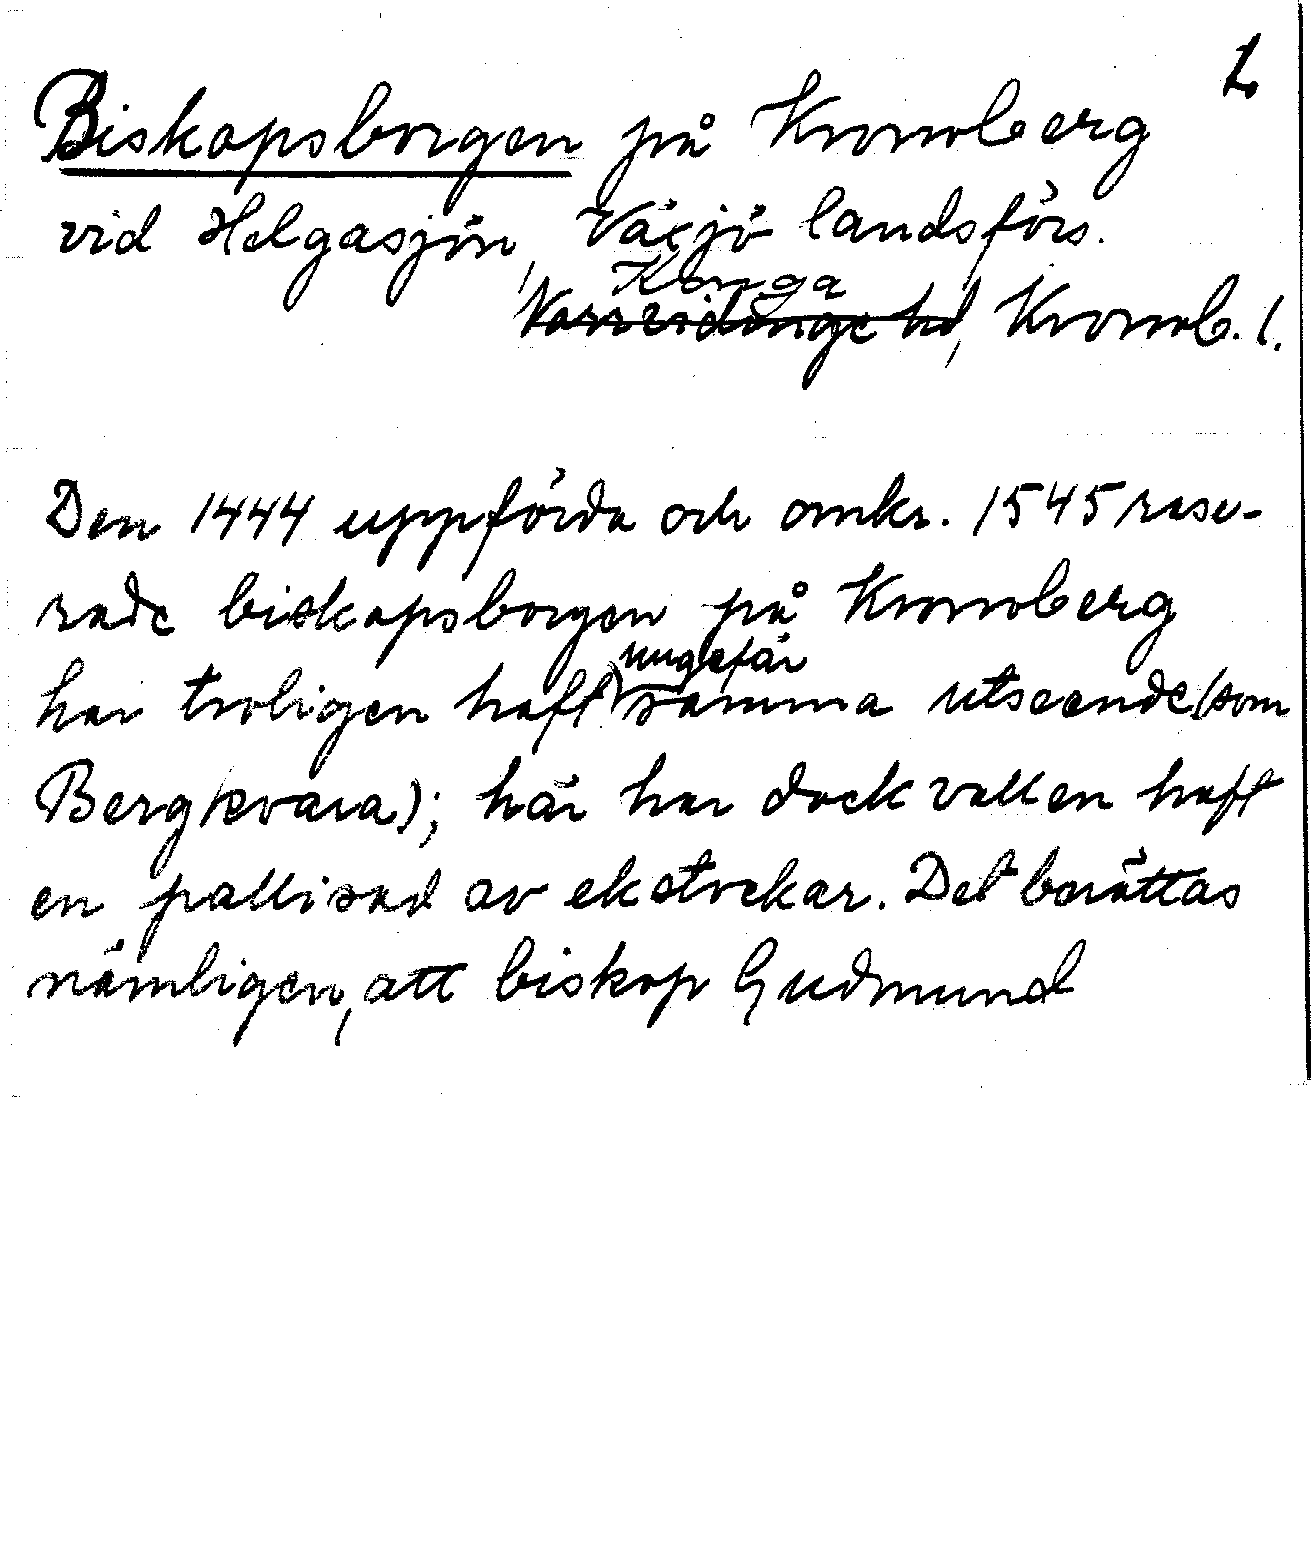 1.
Biskopsborgen på Kronoberg
vid Helgasjön, Växjö landsförs.
Konga
Norrvidinge hd, Kronob. l.
Den 1444 uppförda och omkr. 1545 rase-
rade biskopsborgen på Kronoberg
har troligen haft ungefär samma utseende (som
Bergkvara); här har dock vallen haft
en pallisad av ekstockar. Det berättas
nämligen, att biskop Gudmund